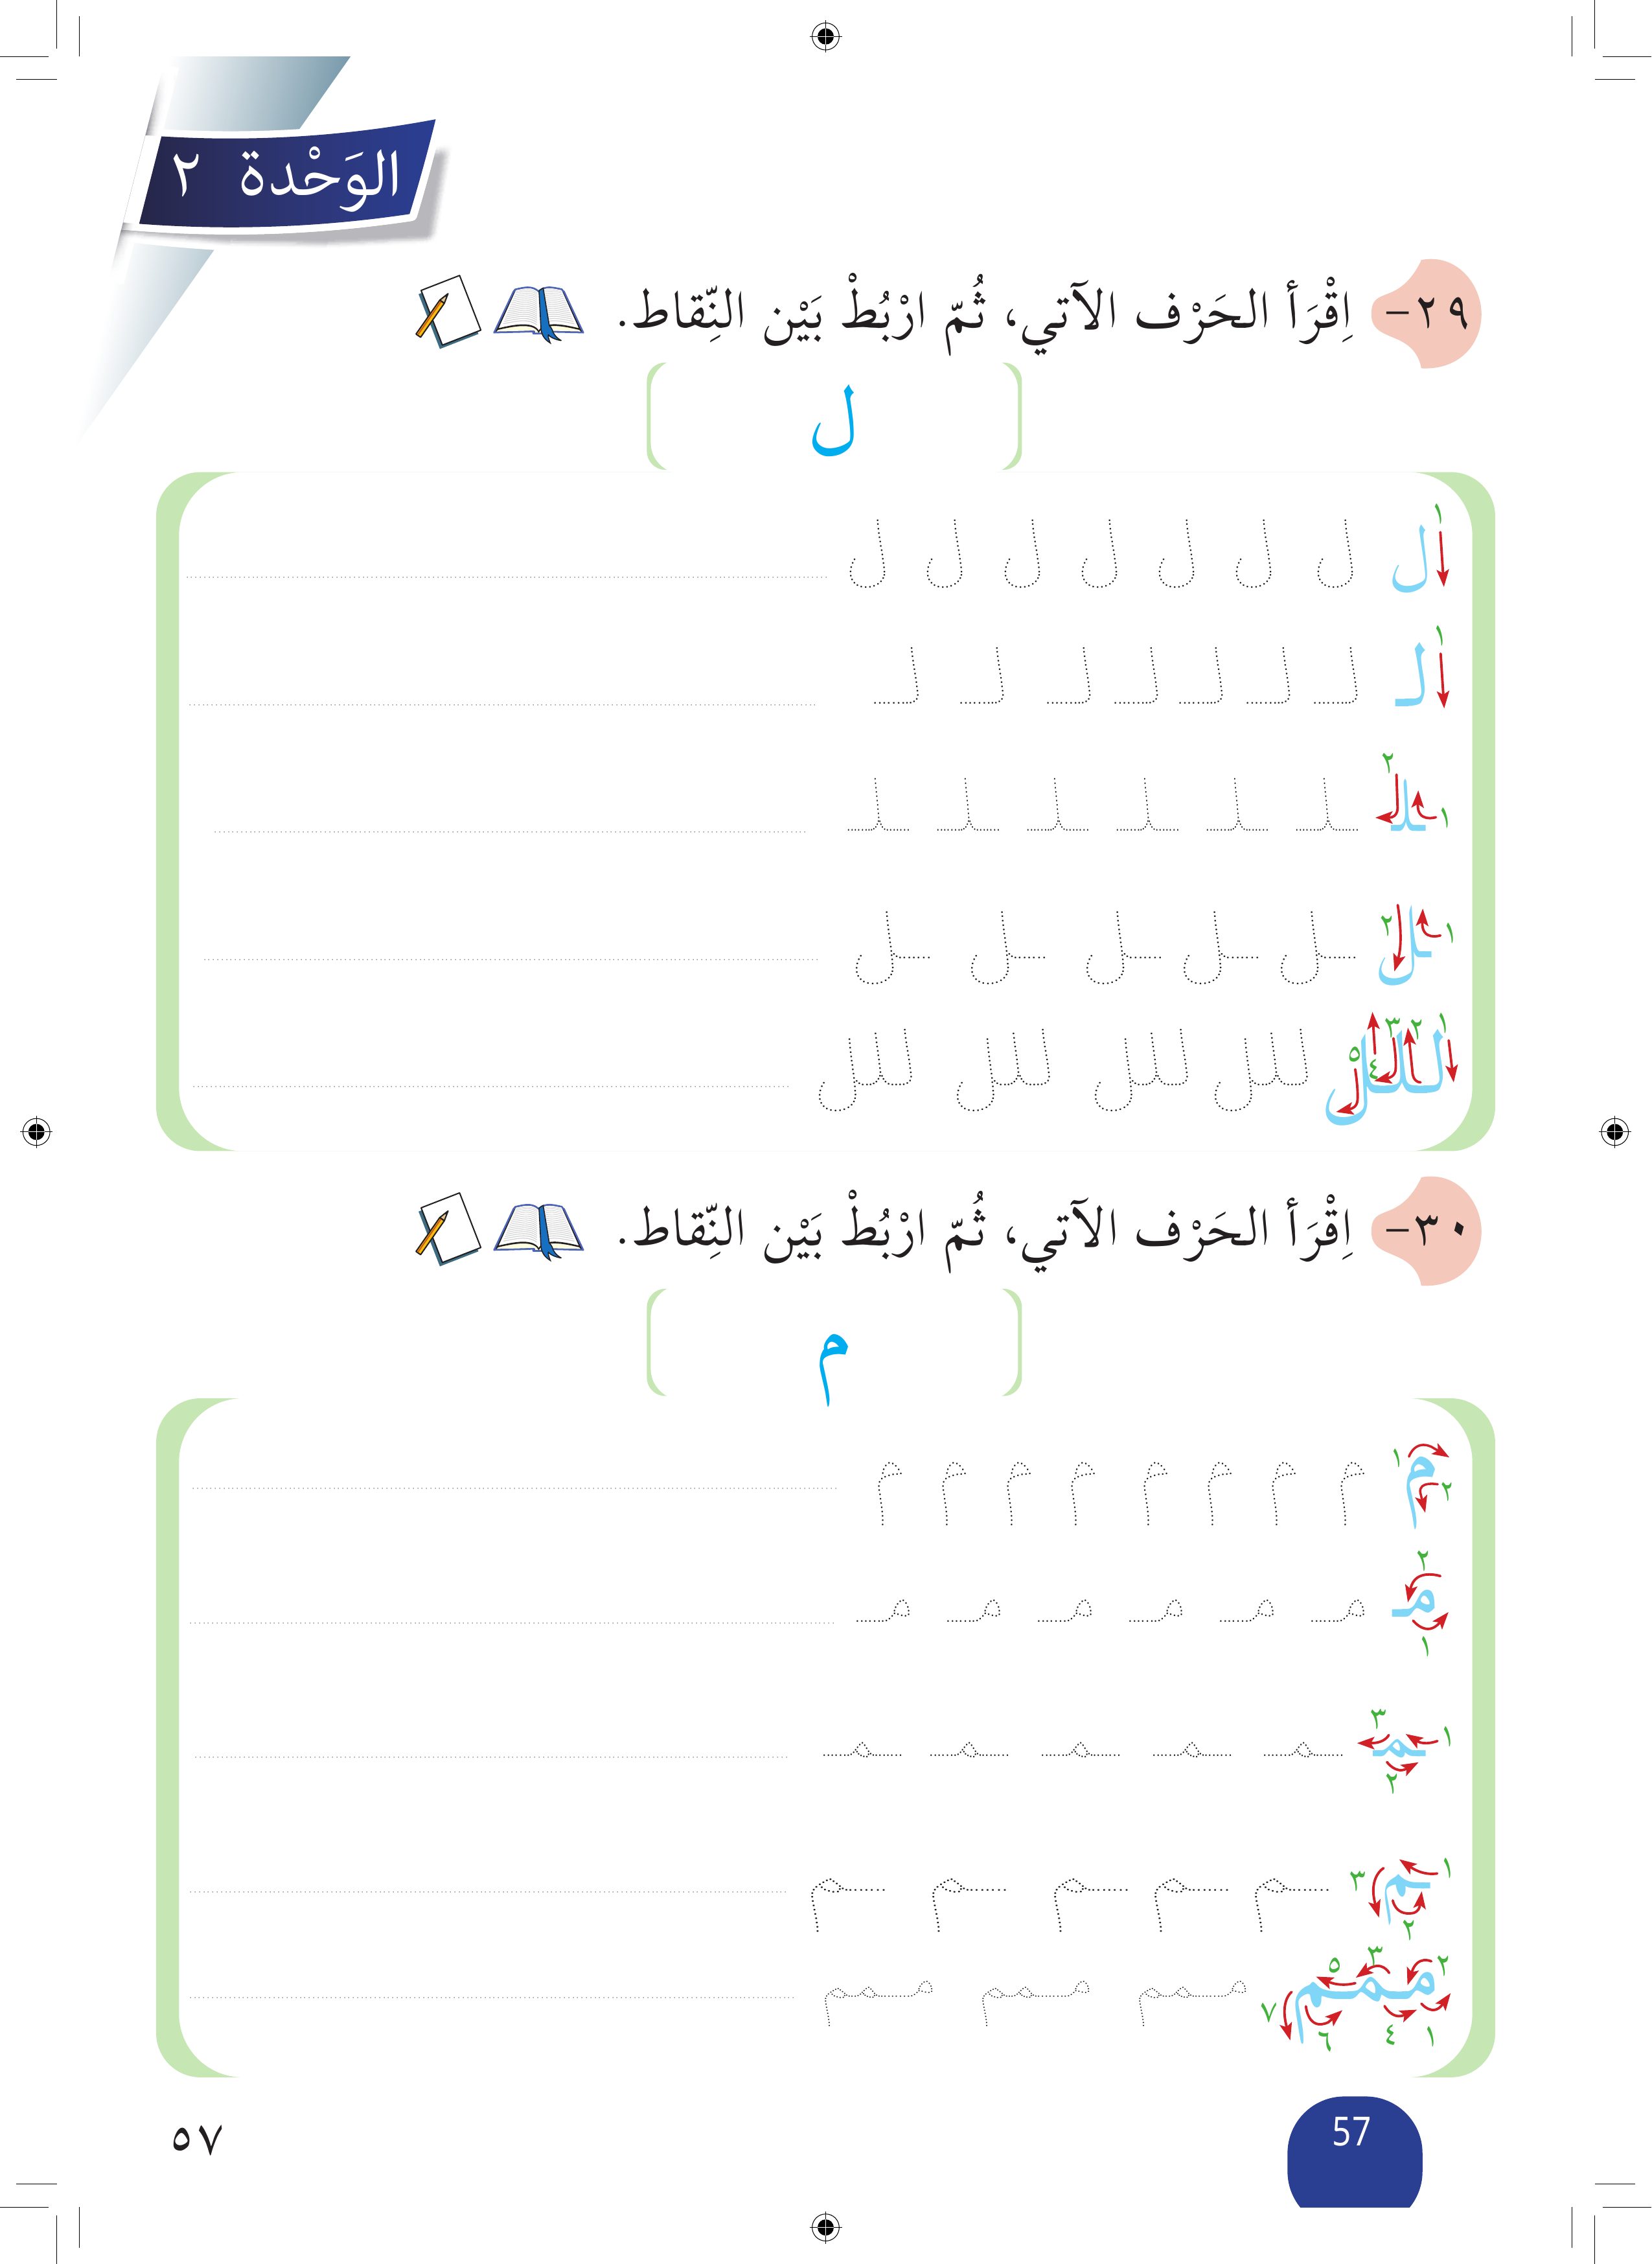 الوَحْدة ٢
٢٩- اِقْرَأ الحَرْف الآتي، ثُمّ ارْبُطْ بَيْن النِّقاط.
ل
١ ل ل ل ل ل ل ل ل
١ لـ لـ لـ لـ لـ لـ لـ لـ
١ ٢ ـلـ ـلـ ـلـ ـلـ ـلـ ـلـ ـلـ
١ ٢ ـل ـل ـل ـل ـل ـل
١ ٢ ٣ ٤ ٥ للل للل للل للل للل
٣٠- اِقْرَأ الحَرْف الآتي، ثُمّ ارْبُطْ بَيْن النِّقاط.
م
١ ٢ م م م م م م م م م
١ ٢ مـ مـ مـ مـ مـ مـ مـ
١ ٢ ٣ ـمـ ـمـ ـمـ ـمـ ـمـ ـمـ
١ ٢ ٣ ـم ـم ـم ـم ـم ـم
١ ٢ ٣ ٤ ٥ ٦ ٧ ممم ممم ممم ممم
57
٥٧